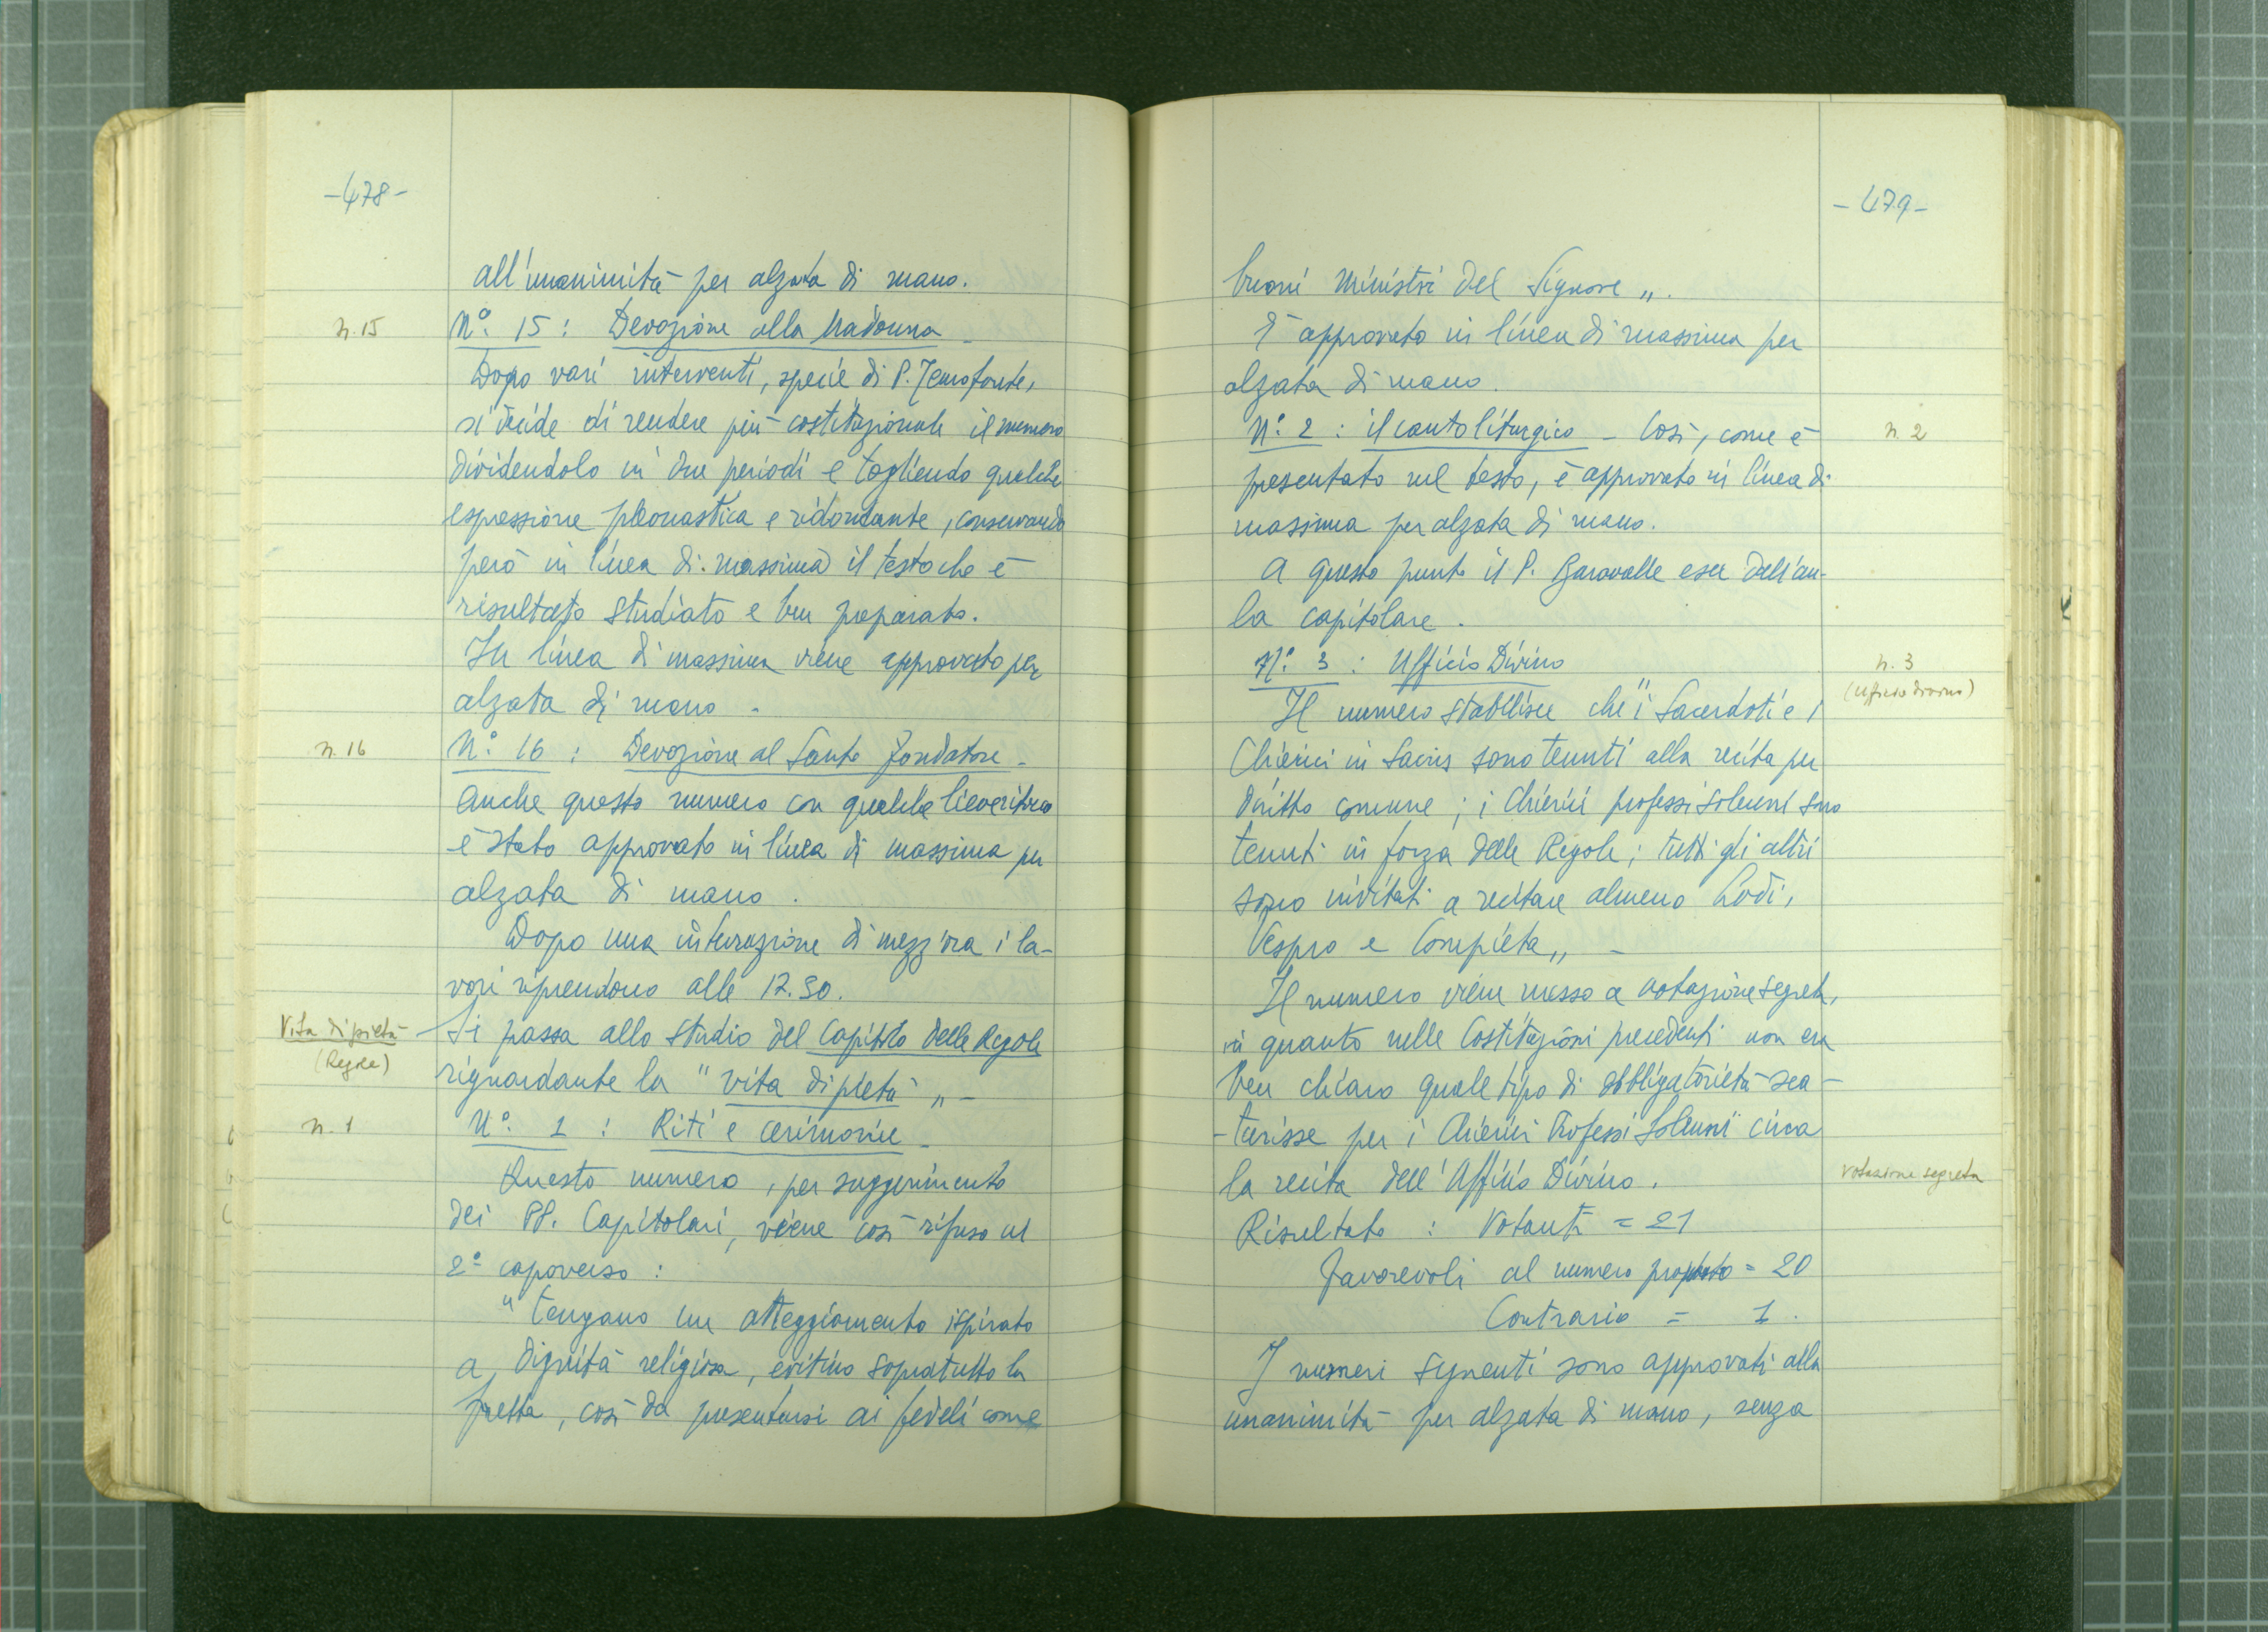 -478-
all'unanimità per alzata di mano.
n. 15
N°. 15 : Devozione alla Madonna -
Dopo vari interventi, specie di P. Temofonte,
si decide di rendere più costituzionale il numero
dividendolo in due periodi e togliendo qualche
espressione pleonastica e ridondante, conservando
però in linea di massima il testo che è
risultato studiato e ben preparato.
In linea di massima viene approvato per
alzata di mano -
n. 16
N°. 16 : Devozione al Santo Fondatore -
Anche questo numero con qualche lieve ritocco
è stato approvato in linea di massima per
alzata di mano.
Dopo una interruzione di mezz'ora i la-
vori riprendono alle 12.30.
Vita di pietà
(Regole)
Si passa allo studio del Capitolo delle Regole
riguardante la "vita di pietà" -
n. 1
N°. 1 : Riti e cerimonie -
Questo numero, per suggerimento
dei PP. Capitolari, viene così rifuso al
2° capoverso :
"Tengano un atteggiamento ispirato
a dignità religiosa, evitino sopratutto la
fretta, così da presentarsi ai fedeli come
-479-
buoni ministri del Signore".
È approvato in linea di massima per
alzata di mano.
N°. 2 : il canto liturgico - Così, come è
n. 2
presentato nel testo, è approvato in linea di
massima per alzata di mano.
A questo punto il P. Baravalle esce dall'au-
la capitolare.
N°. 3 : Ufficio Divino
n. 3
(Ufficio divino)
Il numero stabilisce che "i Sacerdoti e i
Chierici in Sacris sono tenuti alla recita per
diritto comune ; i Chierici professi solenni sono
tenuti in forza delle Regole ; tutti gli altri
sono invitati a recitare almeno Lodi,
Vespro e Compieta" -
Il numero viene messo a votazione segreta,
in quanto nelle Costituzioni precedenti non era
ben chiaro quale tipo di obbligatorietà sca-
-turisse per i Chierici Professi Solenni circa
la recita dell'Ufficio Divino.
votazione segreta
Risultato : Votanti = 21
Favorevoli al numero proposto = 20
Contrario = 1.
I numeri seguenti sono approvati alla
unanimità per alzata di mano, senza